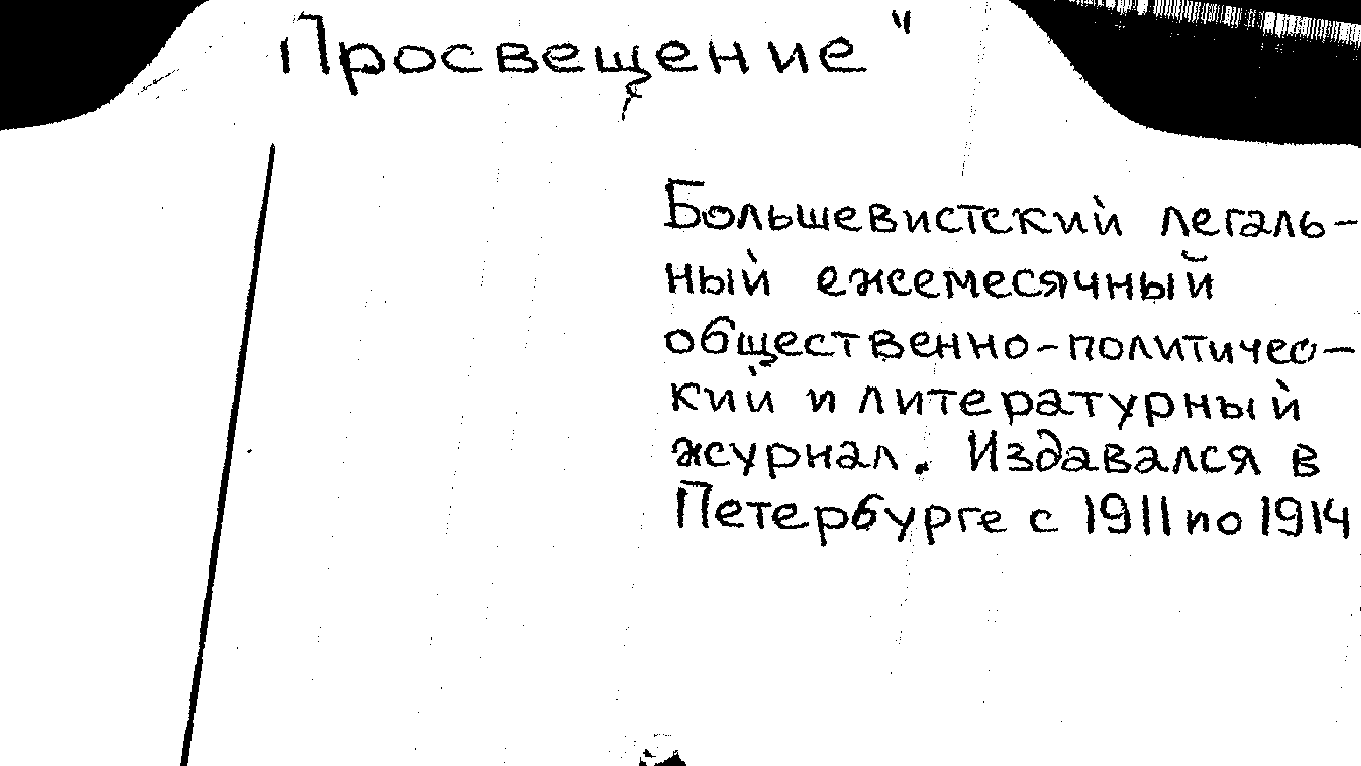 „Просвещение"
Большевистский легаль-
ный ежемесячный
общественно-политичес-
кий и литературный
журнал. Издавался в
Петербурге с 1911 по 1914